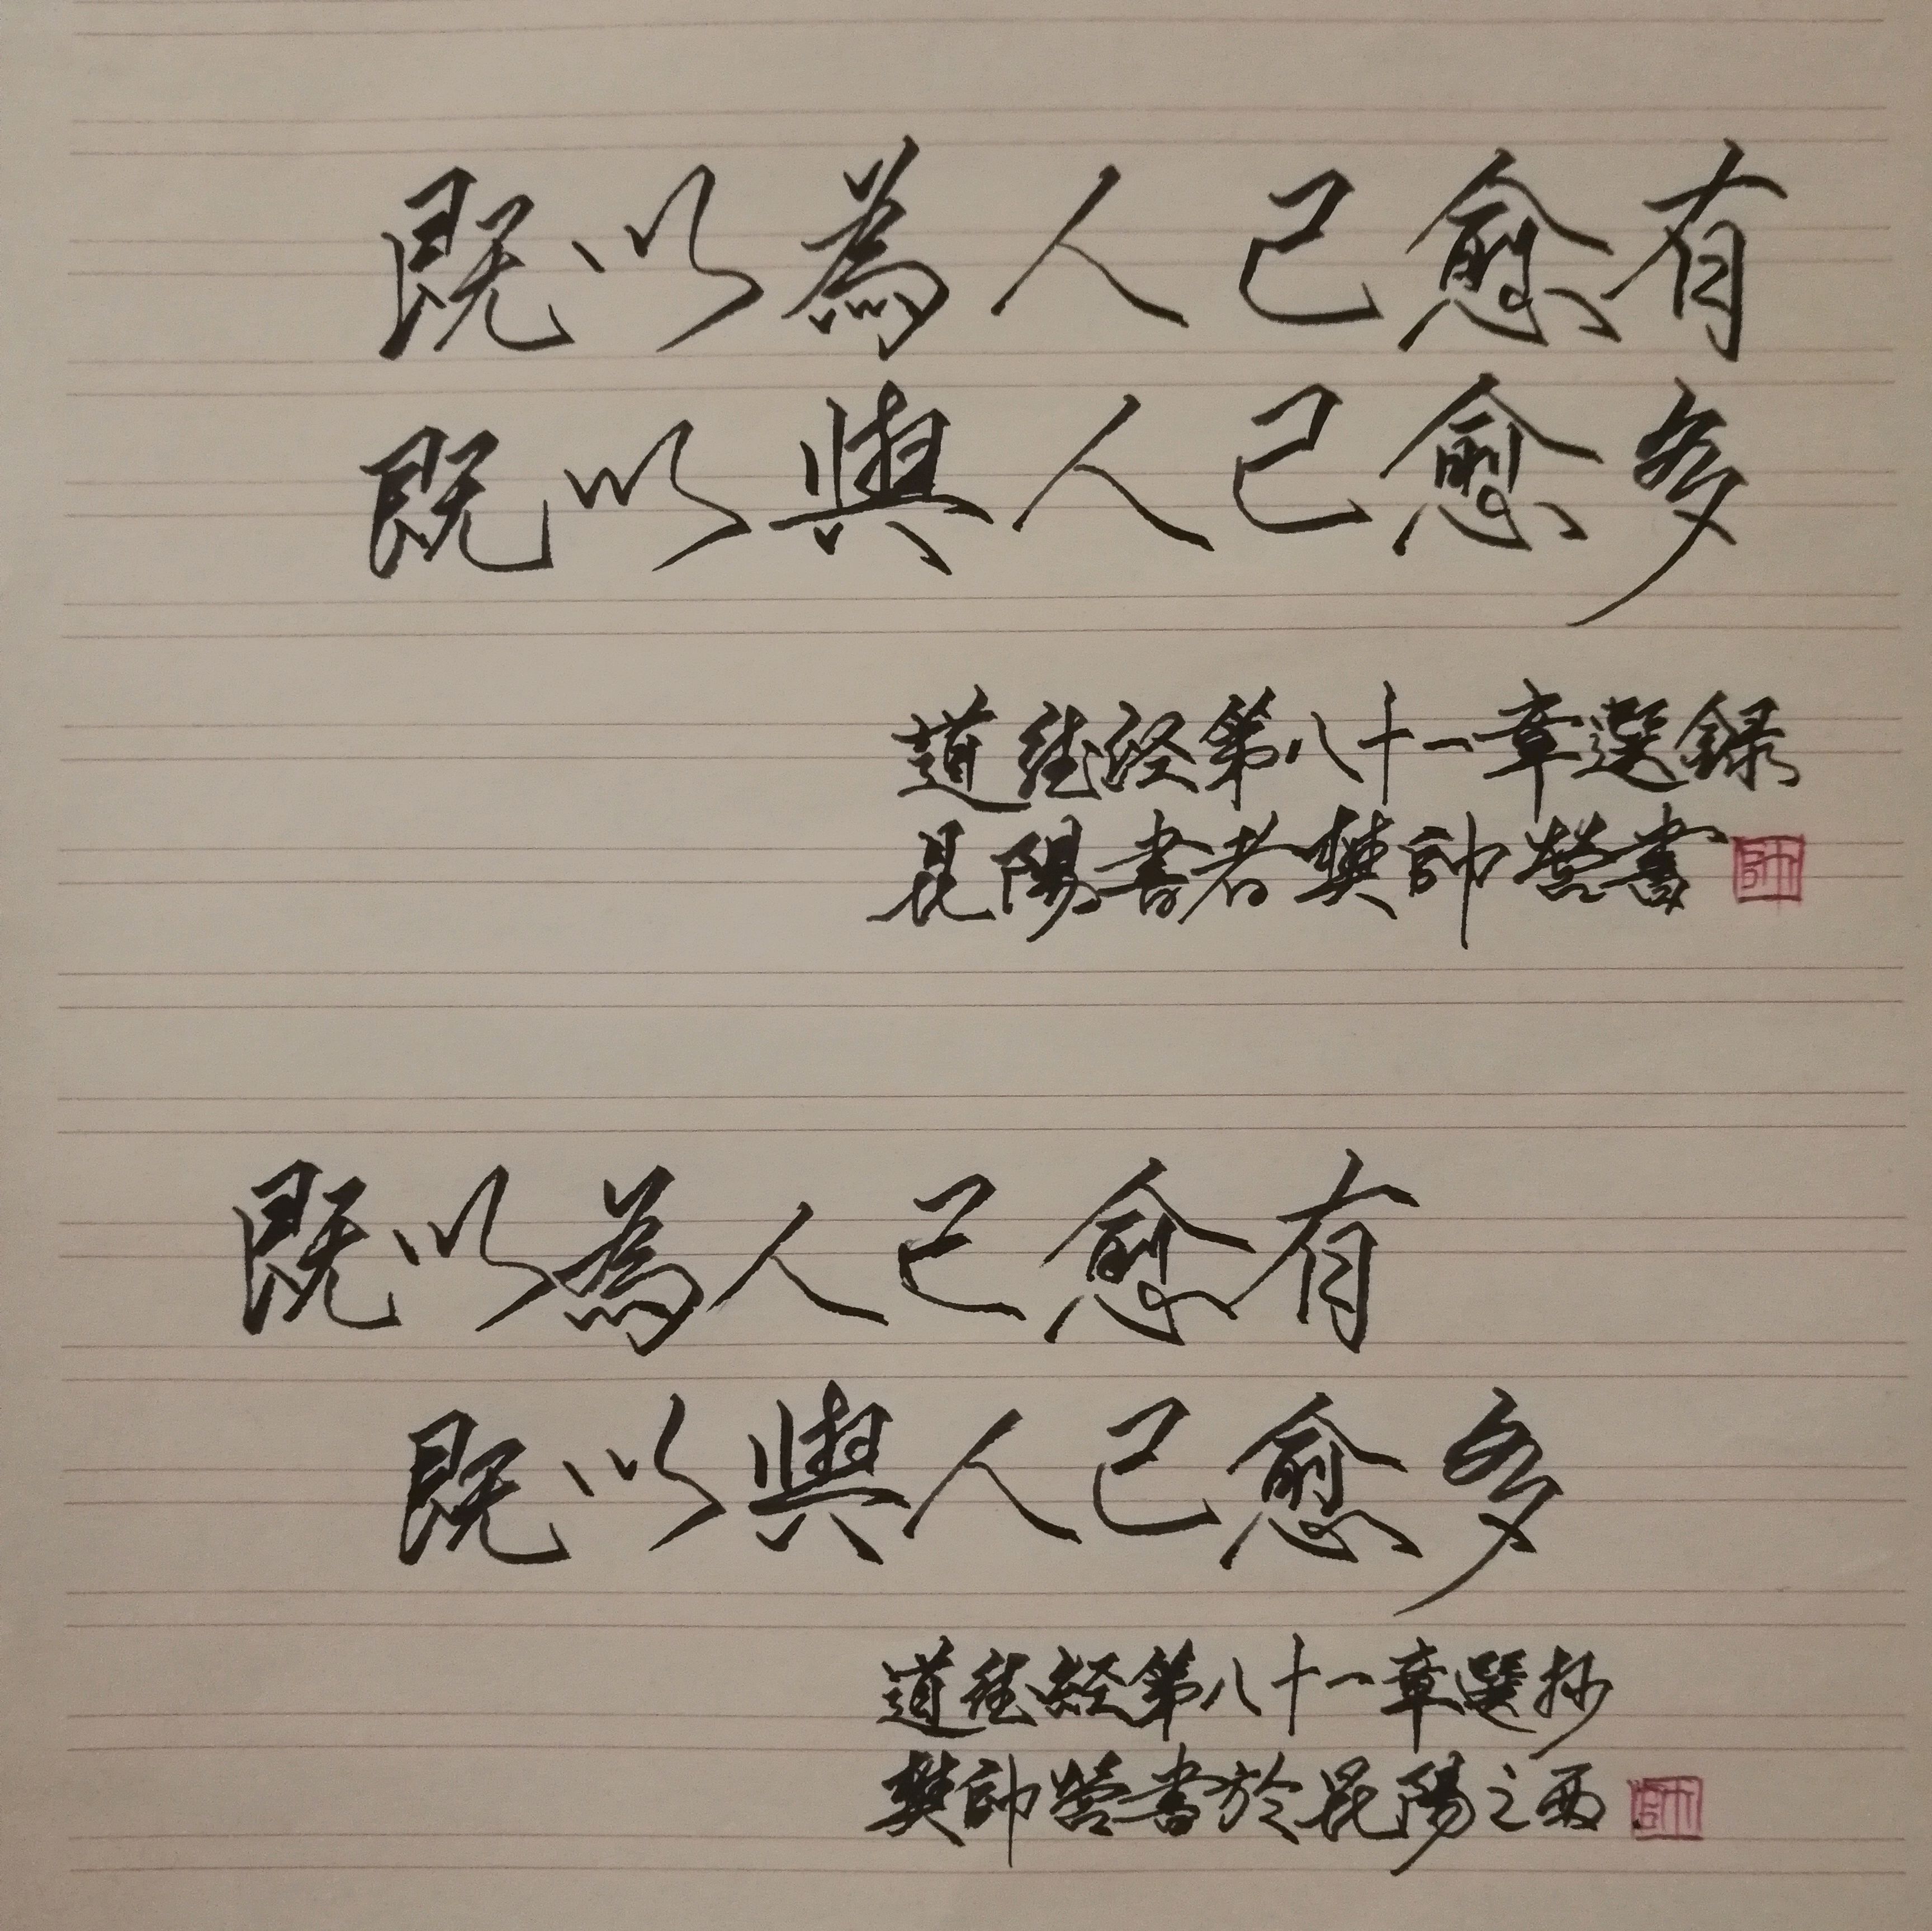 既以為人己愈有
既以與人己愈多
道德经第八十一章選録
昆陽書者樊帥营書
既以為人己愈有
既以與人己愈多
道德経第八十一章選抄
樊帥营書於昆陽之西